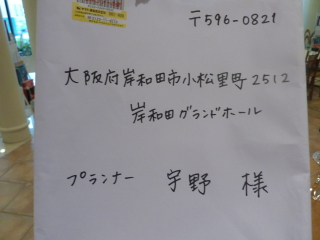 〒596-0821
大阪府岸和田市小松里町2512
岸和田グランドホール
プランナー 宇野 様